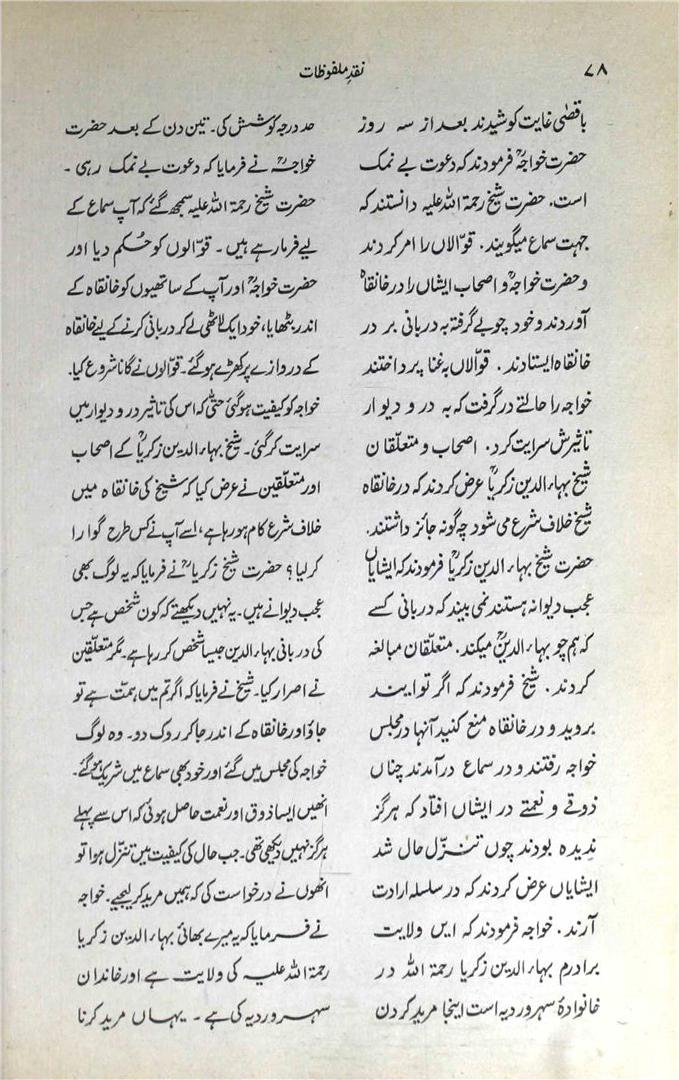 ۷۸
نقدِ ملفوظات
باقصٰی غایت کوشیدند بعد از سہ روز
حضرت خواجہؒ فرمودند کہ دعوت بے نمک
است۔ حضرت شیخ رحمۃ اللہ علیہ دانستند کہ
جہت سماع میگویند۔ قوّالاں را امر کردند
و حضرت خواجہؒ و اصحاب ایشاں را در خانقاہ
آوردند و خود چوبے گرفتہ بہ دربانی بر در
خانقاہ ایستادند۔ قوّالاں بہ غنا پرداختند
خواجہ را حالتے در گرفت کہ بہ در و دیوار
تاثیرش سرایت کرد۔ اصحاب و متعلّقان
شیخ بہاء الدین زکریاؒ عرض کردند کہ در خانقاہ
شیخ خلاف شرع می شود چہ گونہ جائز داشتند۔
حضرت شیخ بہاء الدین زکریاؒ فرمودند کہ ایشایاں
عجب دیوانہ ہستند نمی بیند کہ دربانی کسے
کہ ہم چو بہاء الدینؒ میکند۔ متعلّقان مبالغہ
کردند۔ شیخ فرمودند کہ اگر توایند
بروید و در خانقاہ منع کنید آنہا در مجلس
خواجہ رفتند و در سماع درآمدند چناں
ذوقے و نعمتے در ایشاں افتاد کہ ہرگز
ندیدہ بودند چوں تنزّل حال شد
ایشایاں عرض کردند کہ در سلسلہ ارادت
آرند۔ خواجہ فرمودند کہ ایں ولایت
برادرم بہاء الدین زکریا رحمۃ اللہ در
خانوادۂ سہروردیہ است اینجا مرید کردن
حد درجہ کوشش کی۔ تین دن کے بعد حضرت
خواجہؒ نے فرمایا کہ دعوت بے نمک رہی۔
حضرت شیخ رحمۃ اللہ علیہ سمجھ گئے کہ آپ سماع کے
لیے فرما رہے ہیں۔ قوّالوں کو حُکم دیا اور
حضرت خواجہؒ اور آپ کے ساتھیوں کو خانقاہ کے
اندر بٹھایا، خود ایک لاٹھی لے کر دربانی کرنے کے لیے خانقاہ
کے دروازے پر کھڑے ہو گئے۔ قوّالوں نے گانا شروع کیا۔
خواجہ کو کیفیت ہو گئی حتّٰی کہ اس کی تاثیر در و دیوار میں
سرایت کر گئی۔ شیخ بہاء الدین زکریاؒ کے اصحاب
اور متعلّقین نے عرض کیا کہ شیخ کی خانقاہ میں
خلاف شرع کام ہو رہا ہے، اسے آپ نے کس طرح گوارا
کر لیا؟ حضرت شیخ زکریاؒ نے فرمایا کہ یہ لوگ بھی
عجب دیوانے ہیں۔ یہ نہیں دیکھتے کہ کون شخص ہے جس
کی دربانی بہاء الدین جیسا شخص کر رہا ہے۔ مگر متعلّقین
نے اصرار کیا۔ شیخ نے فرمایا کہ اگر تم میں ہمّت ہے تو
جاؤ اور خانقاہ کے اندر جا کر روک دو۔ وہ لوگ
خواجہ کی مجلس میں گئے اور خود بھی سماع میں شریک ہو گئے۔
انھیں ایسا ذوق اور نعمت حاصل ہوئی کہ اس سے پہلے
ہرگز نہیں دیکھی تھی۔ جب حال کی کیفیت میں تنزّل ہوا تو
انھوں نے درخواست کی کہ ہمیں مرید کر لیجیے۔ خواجہ
نے فرمایا کہ یہ میرے بھائی بہاء الدین زکریا
رحمۃ اللہ علیہ کی ولایت ہے اور خاندان
سہروردیہ کی ہے۔ یہاں مرید کرنا